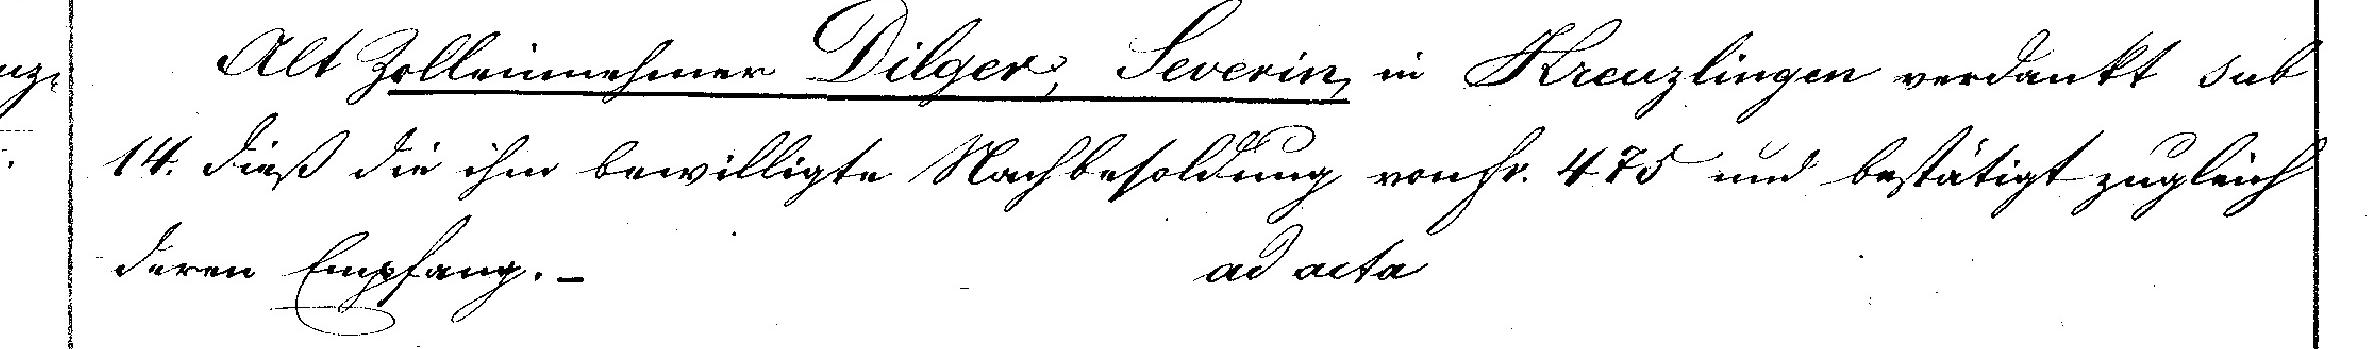 Alt Zolleinnehmer Dilger, Severin, in Kreuzlingen verdankt sub
14. dieß die ihm bewilligte Nachbesoldung von fr. 475 und bestätigt zugleich
deren Empfang. –   ad acta